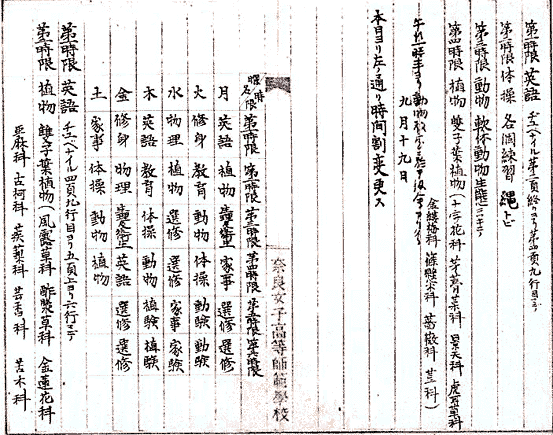 第一時限 英語 頁終リヨリ第四頁九行目
第二時限 体操 各個練習 縄トビ
第三時限 動物 軟体動物生態
第四時限 植物 雙子葉植物(十字花科 茅膏菜科 景天科 虎耳草科
金縷梅科 篠懸木科 薔薇科 荳科)
午後一時半ヨリ動物教室
九月十九日
本日ヨリ左ノ通リ時間割変更ス
奈良女子高等師範學校
第一時限 第二時限 第三時限 第四時限 第五時限 第六時限
月 英語 植物 家事 選修 選修
火 修身 教育 動物 体操 動験 動験
水 物理 植物 選修 選修 家事 家験
木 英語 教育 体操 動物 植験 植験
金 修身 物理 英語 選修 選修
土 家事 体操 動物 植物
第一時限 英語 四頁九行目ヨリ五頁上ヨリ六行
第二時限 植物 雙子葉植物(風露草科 酢漿草科 金蓮花科
亜麻科 古柯科 蒺藜科 芸香科 苦木科